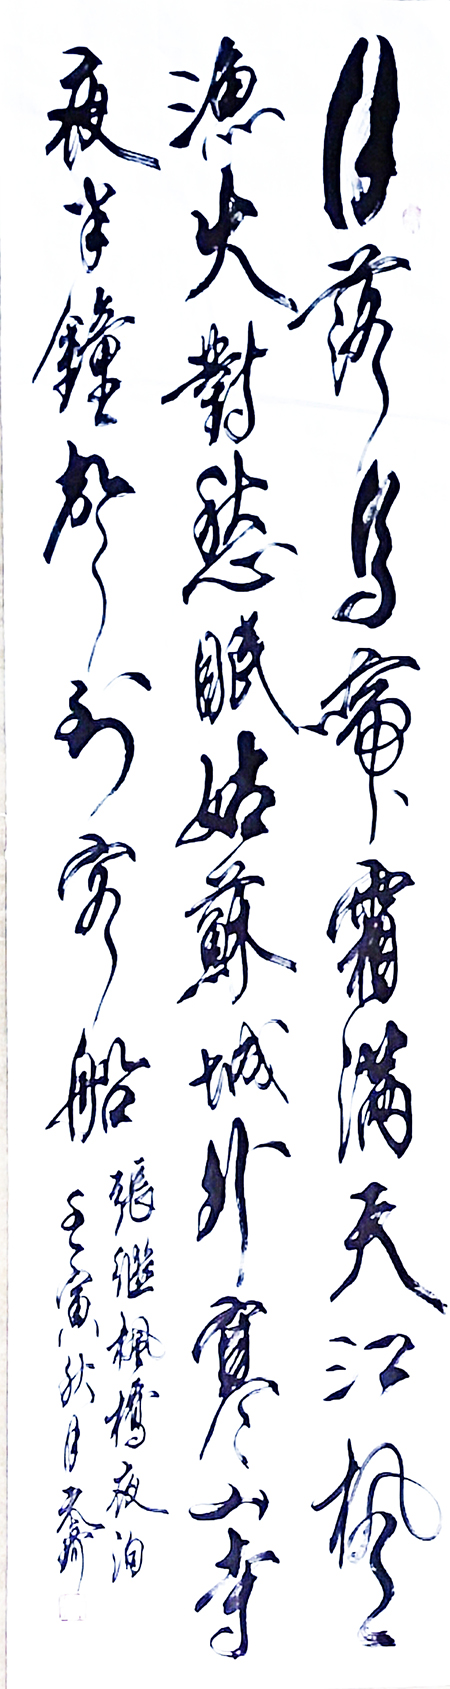 月落烏啼霜滿天江楓
漁火對愁眠姑蘇城外寒山寺
夜半鐘聲到客船
張繼楓橋夜泊
壬寅秋月